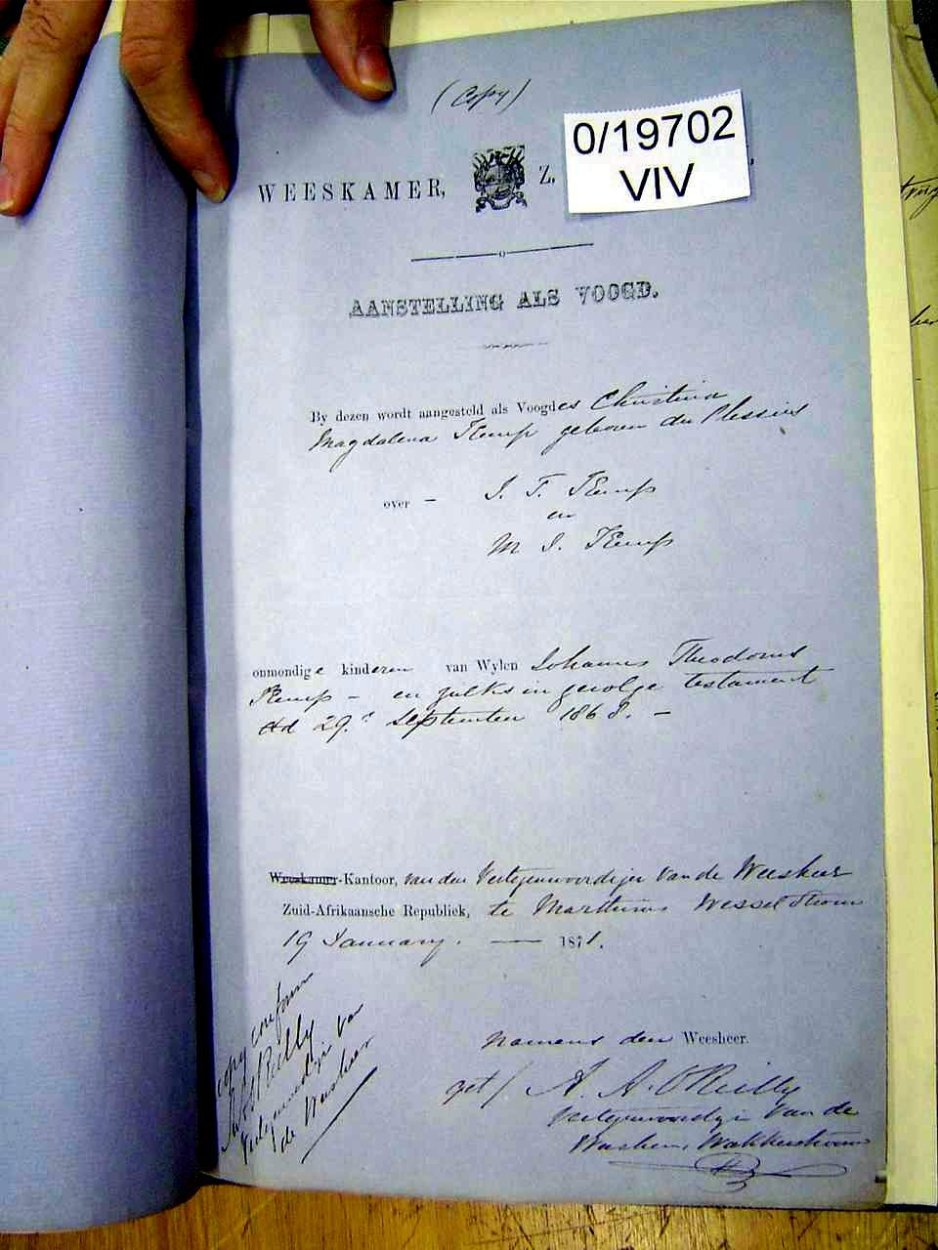 (Copy)
0/19702
VIV
WEESKAMER, Z,
AANSTELLING ALS VOOGD.
By dezen wordt aangesteld als Voogdes Christina
Magdalena Kemp geboren du Plessies
over - J. T. Kemp
en
M J. Kemp
onmondige kinderen van Wylen Johannes Theodorus
Kemp - en zulks in gevolge testament
dd 29. September 1868. -
Weeskamer-Kantoor, van den Vertegenwoordiger van de Weesheer
Zuid-Afrikaansche Republiek, te Marthinus Wesselstroom
19 January. - 1871.
Namens den Weesheer.
get/ A. A. O'Reilly
Vertegenwoordiger van de
Weesheer, Wakkerstroom
copy conform
O'Reilly
Vertegenwoordiger van
de Weesheer